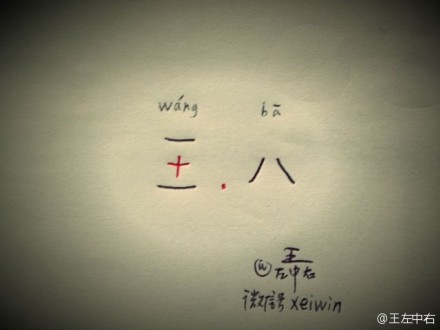 wáng bā
王.八
@王
左中右
微語 xeiwin
@王左中右